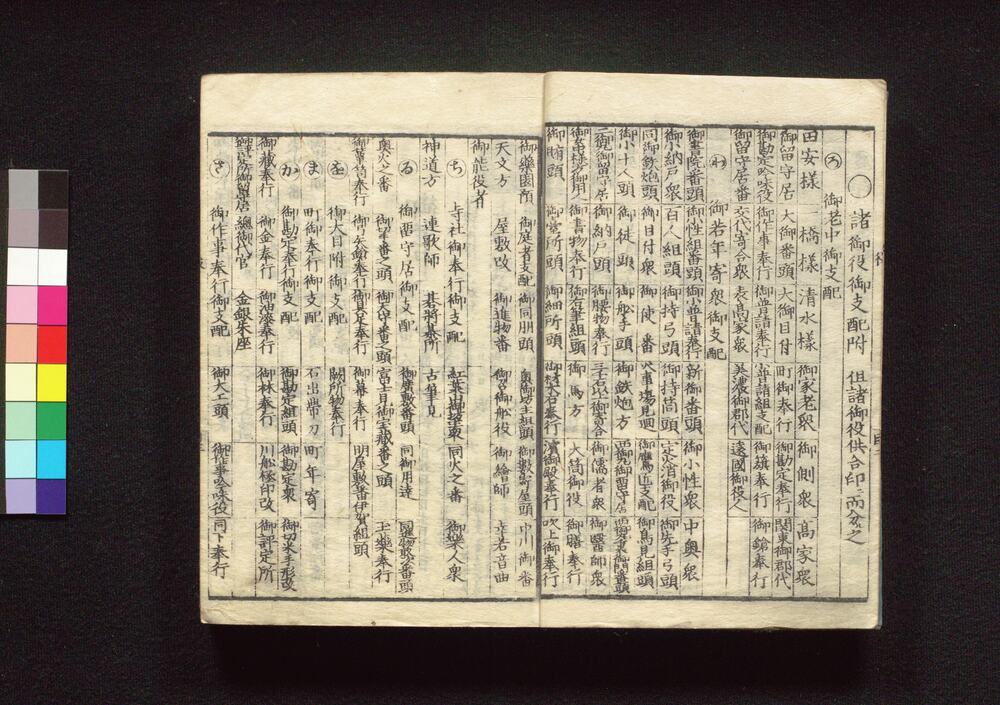 〇諸御役御支配附 但諸御役供合印ニ而分之
ろ 御老中御支配
田安様 一橋様 清水様 御家老衆 御側衆 高家衆
御留守居 大御番頭 大御目付 町御奉行 御勘定奉行 関東御郡代
御勘定吟味役 御作事奉行 御普請奉行 御普請組支配 御旗奉行 御鎗奉行
御留守居番 交代寄合衆 表高家衆 美濃御郡代 遠國御役人
わ 御若年寄衆御支配
御書院番頭 御小性組番頭 御小普請奉行 新御番頭 御小性衆 中奥衆
御小納戸衆 百人組頭 御持弓頭 御持筒頭 定火消御役 御先手弓頭
同御鉄炮頭 御目付衆 御使番 火事場見廻 御鷹匠支配 御鳥見組頭
御小十人頭 御徒頭 御船手頭 御鉄炮方 西御留守居
二丸御留守居 御納戸頭 御腰物奉行 御儒者衆 御醫師衆
御書物奉行 御右筆組頭 御馬方 大筒御役 御膳奉行
御賄頭 御臺所頭 御細所頭 御材木石奉行 濱御殿奉行 吹上御奉行
御藥園預 御庭者支配 御同朋頭 奥御坊主組頭 御數寄屋頭 中川御番
天文方 屋敷改 御進物番 御召御舩役 御繪師 幸若音曲
御能役者
ち 寺社御奉行御支配 紅葉山御坊主衆 同火之番 御樂人衆
神道方 連歌師 碁將棊所 古筆見
る 御留守居御支配 御廣敷番頭 同御用達
奥火之番 御天守番之頭 冨士見御宝藏番之頭 玉藥奉行
御弓矢鎗奉行 御具足奉行 御幕奉行 明屋敷番伊賀組頭
を 御大目附御支配 闕所物奉行
ま 町御奉行御支配 石出帶刀 町年寄
か 御勘定奉行御支配 御勘定組頭 御勘定衆 御切米手形改
御藏奉行 御金奉行 御油漆奉行 御林奉行 川船極印改 御評定所
總御代官 金銀朱座
さ 御作事奉行御支配 御大工頭 御作事吟味役 同下奉行